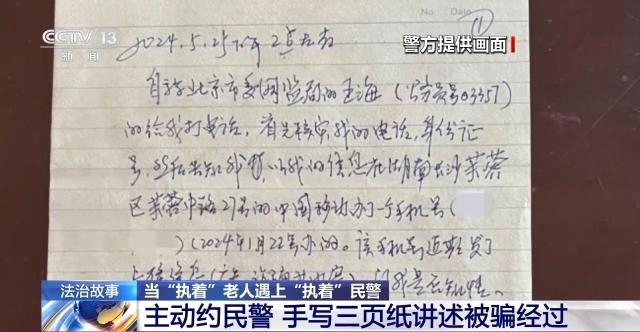 CCTV 13
新闻
No. Date
①
警方提供画面
2024.5.25下午2点左右
自称北京市委网监局的王海(公务员号03357)
的给我打电话,首先核实我的电话,身份证
号,然后告知我,以我的信息在湖南长沙芙蓉
区芙蓉中路21号的中国移动办了一个手机号(
)(2024年1月22号办的。该手机号近期发了
问我是否知情。
法治故事
当“执着”老人遇上“执着”民警
主动约民警 手写三页纸讲述被骗经过